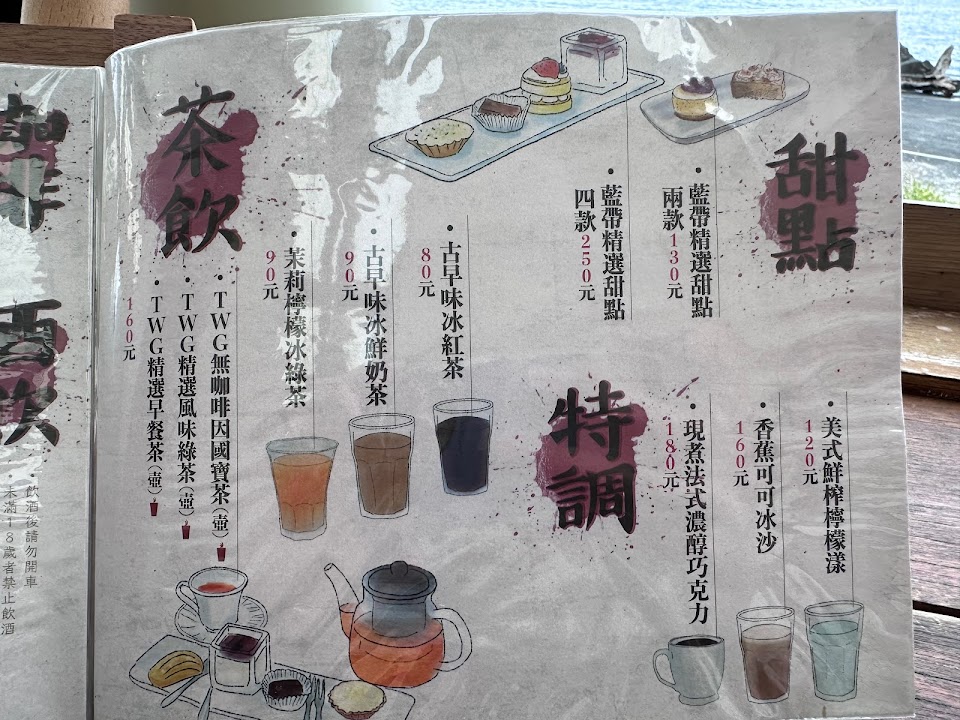 甜點
・藍帶精選甜點
兩款130元
・藍帶精選甜點
四款250元
特調
・美式鮮榨檸檬漾
120元
・香蕉可可冰沙
160元
・現煮法式濃醇巧克力
180元
茶飲
・古早味冰紅茶
80元
・古早味冰鮮奶茶
90元
・茉莉檸檬冰綠茶
90元
・TWG無咖啡因國寶茶(壺)
・TWG精選風味綠茶(壺)
・TWG精選早餐茶(壺)
160元
咖啡
酒飲
・飲酒後請勿開車
・未滿18歲者禁止飲酒